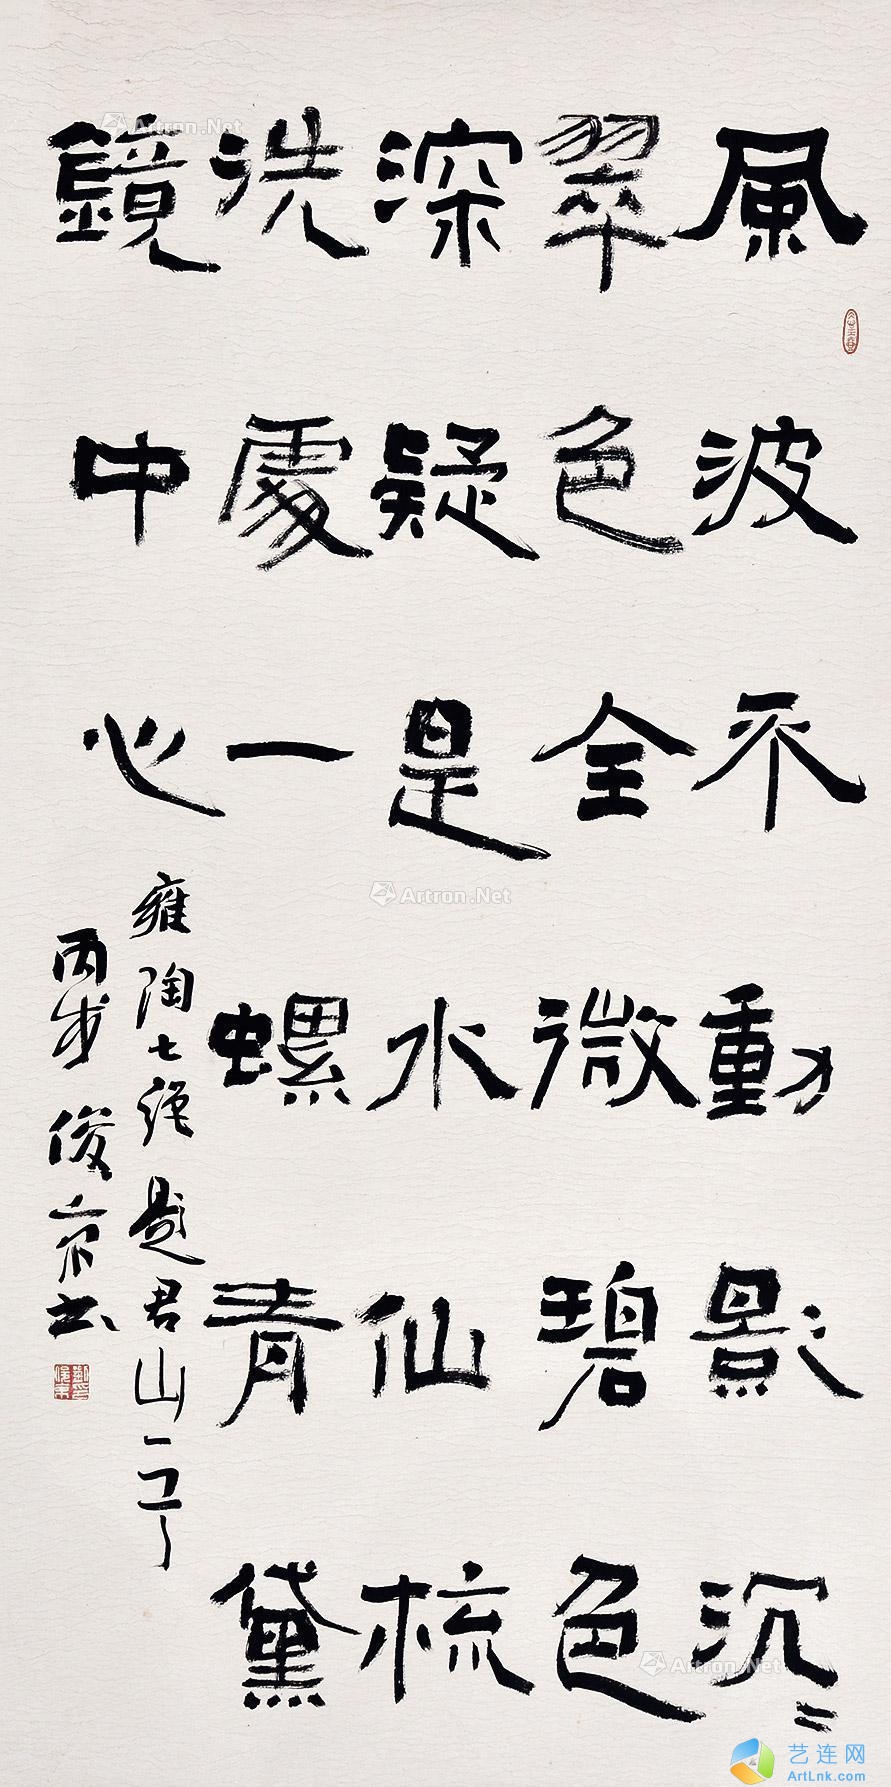 風波不動影沉〻
翠色全微碧色
深疑是水仙梳
洗處一螺青黛
鏡中心
雍陶七絕題君山
丙戌俊京书
Artron.Net
Artron.Net
Artron.Net
艺连网
ArtLnk.com